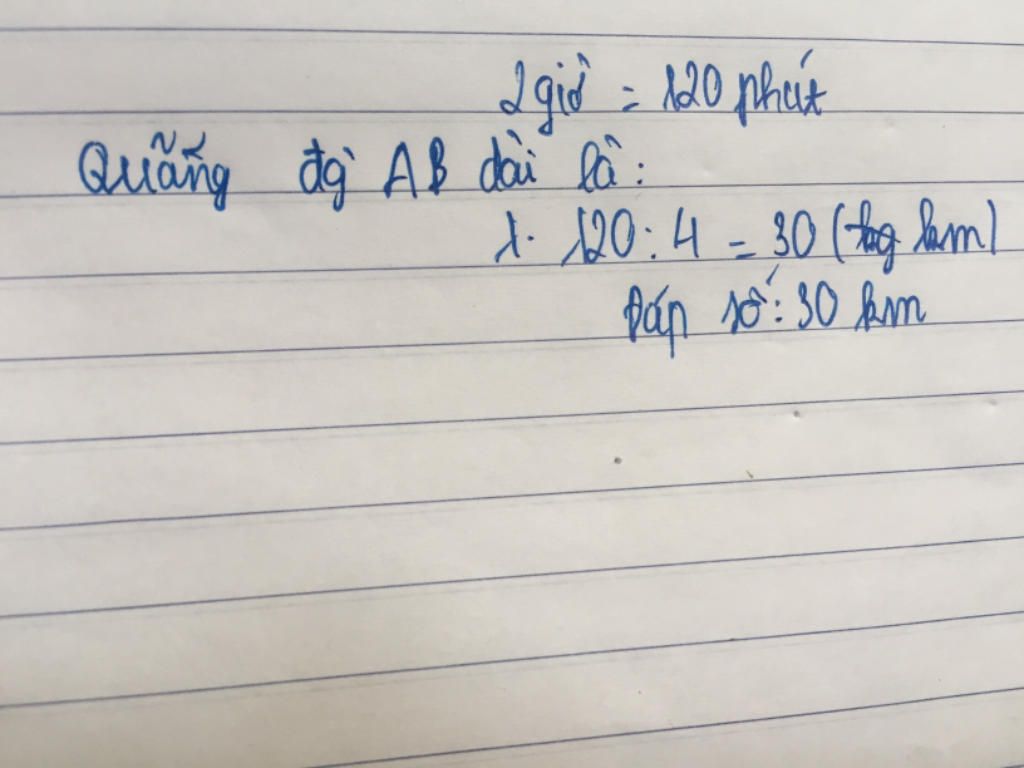 2 giờ = 120 phút
Quãng đg AB dài là:
1. 120 : 4 = 30 (km)
Đáp số: 30 km